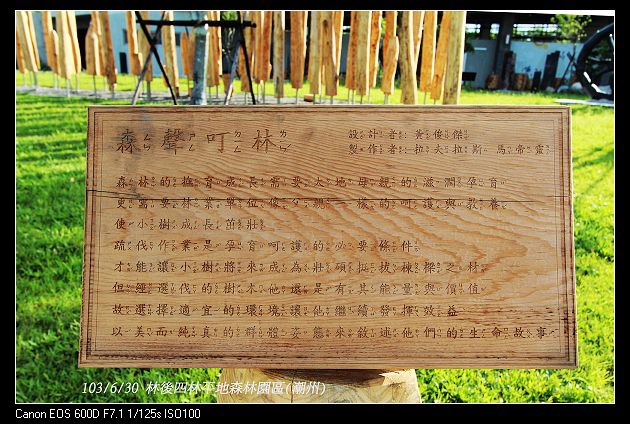 森聲叮林
設計者:黃俊傑
製作者:拉夫拉斯 馬帝靈
森林的撫育成長需要大地母親的滋潤孕育
更需要林業單位像父親一樣的呵護與教養
使小樹成長茁壯
疏伐作業是孕育呵護的必要條件
才能讓小樹將來成為壯碩挺拔棟樑之材
但經選伐的樹木他還是有其能量與價值
故選擇適宜的環境讓他繼續發揮效益
以美而純真的群體姿態來敘述他們的生命故事
103/6/30 林後四林平地森林園區(潮州)
Canon EOS 600D F7.1 1/125s ISO100